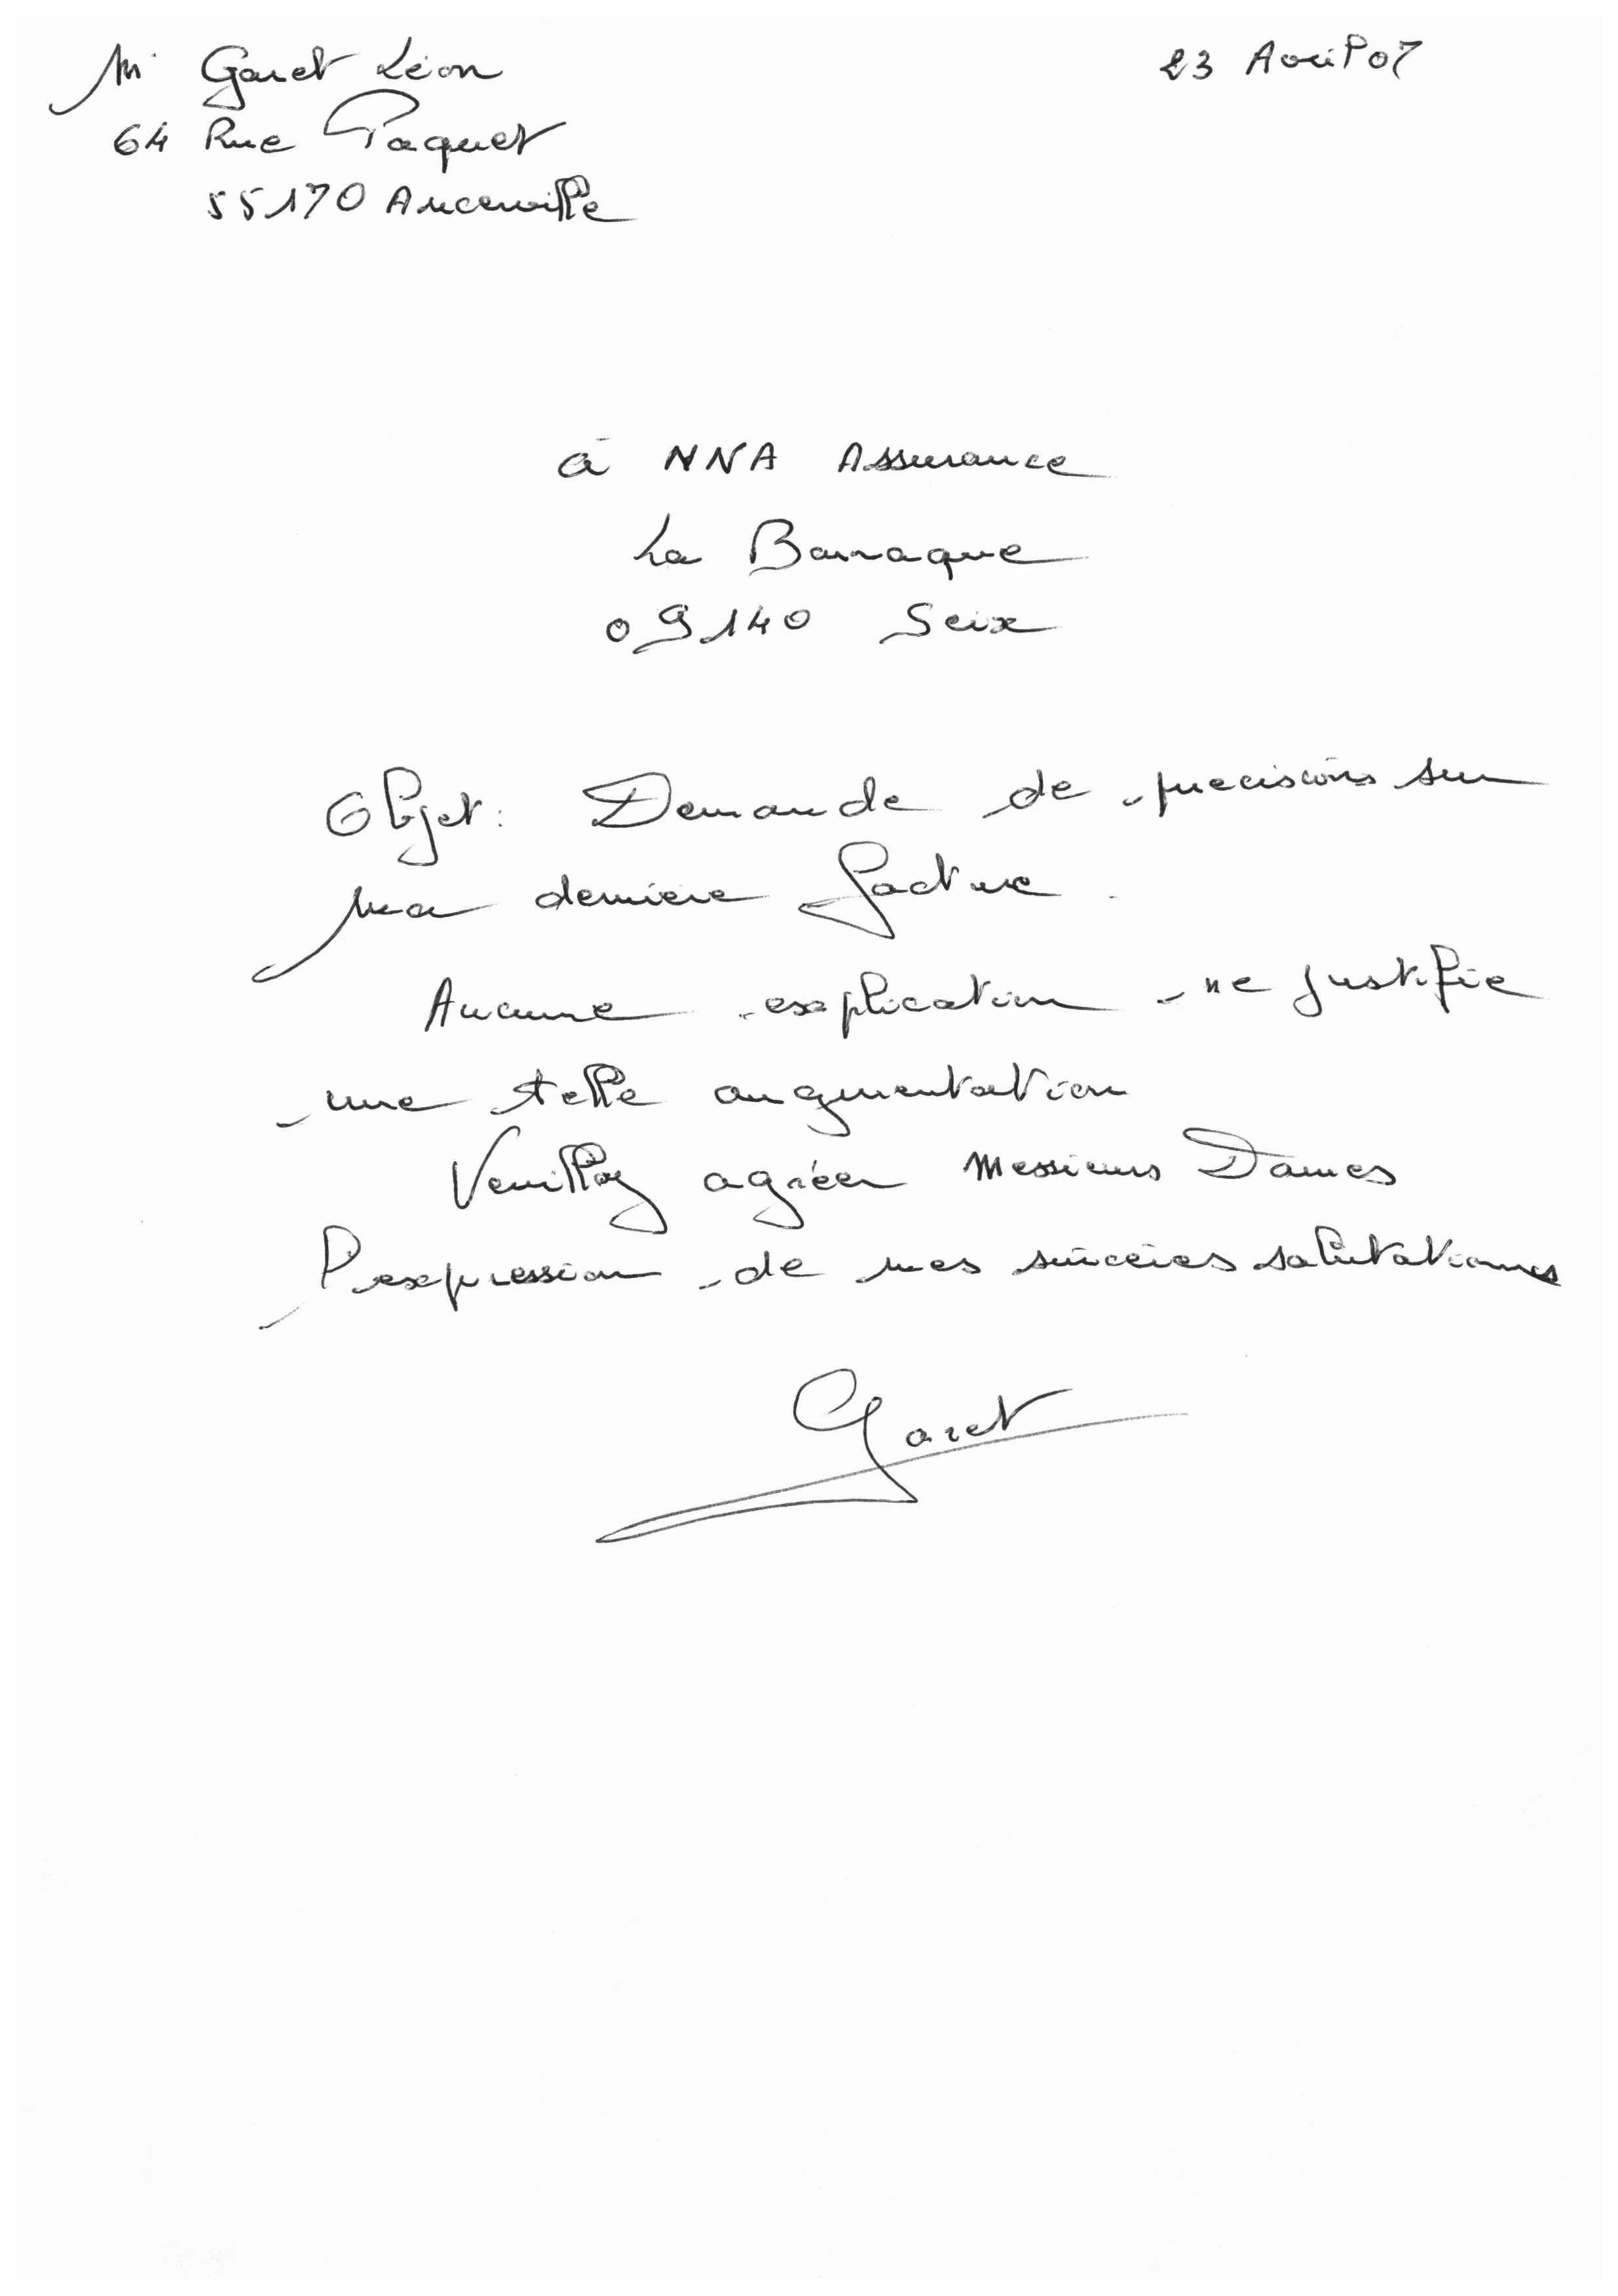 Mr Garet Léon
23 Avril 07
64 Rue Paquet
55170 Ancerville
à NNA Assurance
La Barraque
09140 Seix
Objet : Demande de précisions sur
ma dernière facture.
Aucune explication ne justifie
une telle augmentation
Veuillez agréer Messieurs Dames
l'expression de mes sincères salutations
Garet